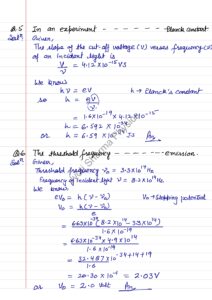 Q.5 In an experiment ------ Planck constant
Solⁿ Given,
The slope of the cut-off voltage (V) versus frequency (ν)
of an incident light is
V/ν = 4.12×10⁻¹⁵ Vs
We know
hν = eV h → Planck's constant
so h = eV/ν
= 1.6×10⁻¹⁹ × 4.12×10⁻¹⁵
h = 6.592 × 10⁻³⁴
or h = 6.59 × 10⁻³⁴ Js Ans
Q.6 The threshold frequency ------ emission.
Solⁿ Given,
Threshold frequency ν₀ = 3.3×10¹⁴ Hz
Frequency of incident light ν = 8.2×10¹⁴ Hz
We know
eV₀ = h(ν − ν₀) V₀ → Stopping potential
V₀ = h(ν − ν₀)/e
= 6.63×10⁻³⁴ (8.2×10¹⁴ − 3.3×10¹⁴) / 1.6 × 10⁻¹⁹
= 6.63×10⁻³⁴ × 4.9 × 10¹⁴ / 1.6×10⁻¹⁹
= 32.487×10^-34+14+19 / 1.6
= 20.30 × 10⁻¹ = 2.03V
or V₀ = 2.0 volt Ans